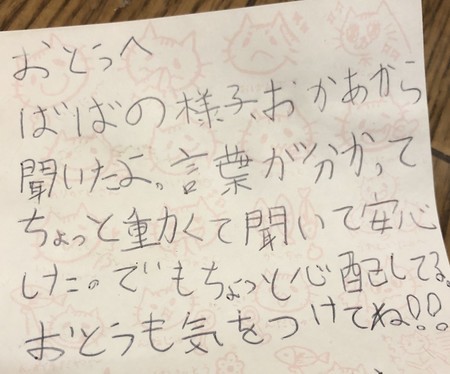 おとうへ
ばばの様子、おかあから
聞いたよ。言葉が分かって
ちょっと動かくて聞いて安心
した。でもちょっと心配してる。
おとうも気をつけてね!!